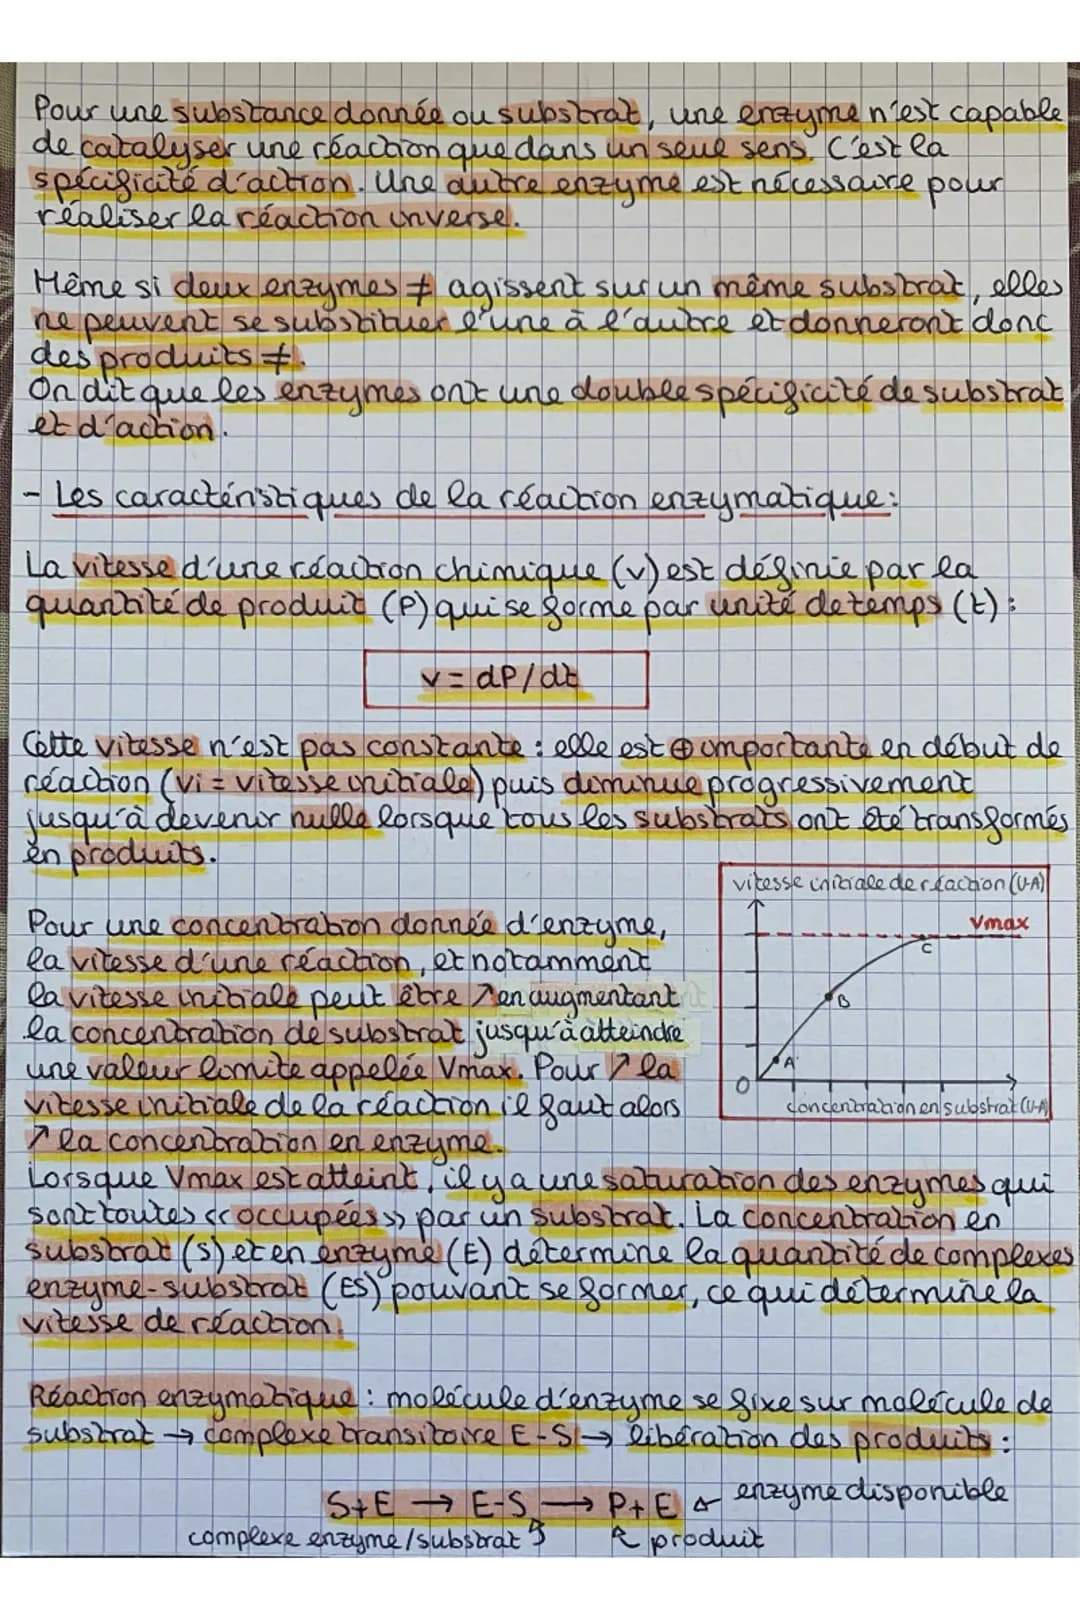 Pour une substance donnée ou substrat, une enzyme n'est capable
de catalyser une réaction que dans un seul sens. C'est la
spécificité d'action. Une autre enzyme est nécessaire pour
réaliser la réaction inverse.
Même si deux enzymes ≠ agissent sur un même substrat, elles
ne peuvent se substituer l'une à l'autre et donneront donc
des produits ≠.
On dit que les enzymes ont une double spécificité de substrat
et d'action.
- Les caractéristiques de la réaction enzymatique:
La vitesse d'une réaction chimique (v) est définie par la
quantité de produit (P) qui se forme par unité de temps (t) :
v = dP/dt
Cette vitesse n'est pas constante : elle est ⊕ importante en début de
réaction (vi = vitesse initiale) puis diminue progressivement
jusqu'à devenir nulle lorsque tous les substrats ont été transformés
en produits.
vitesse initiale de réaction (U.A)
Vmax
C
B
A
O
concentration en substrat (U.A)
Pour une concentration donnée d'enzyme,
la vitesse d'une réaction, et notamment
la vitesse initiale peut être ↗ en augmentant
la concentration de substrat jusqu'à atteindre
une valeur limite appelée Vmax. Pour ↗ la
vitesse initiale de la réaction il faut alors
↗ la concentration en enzyme.
Lorsque Vmax est atteint, il y a une saturation des enzymes qui
sont toutes << occupées >> par un substrat. La concentration en
substrat (S) et en enzyme (E) détermine la quantité de complexes
enzyme-substrat (ES) pouvant se former, ce qui détermine la
vitesse de réaction.
Réaction enzymatique : molécule d'enzyme se fixe sur molécule de
substrat → complexe transitoire E-S → libération des produits :
S+E → E-S → P+E enzyme disponible
complexe enzyme/substrat produit